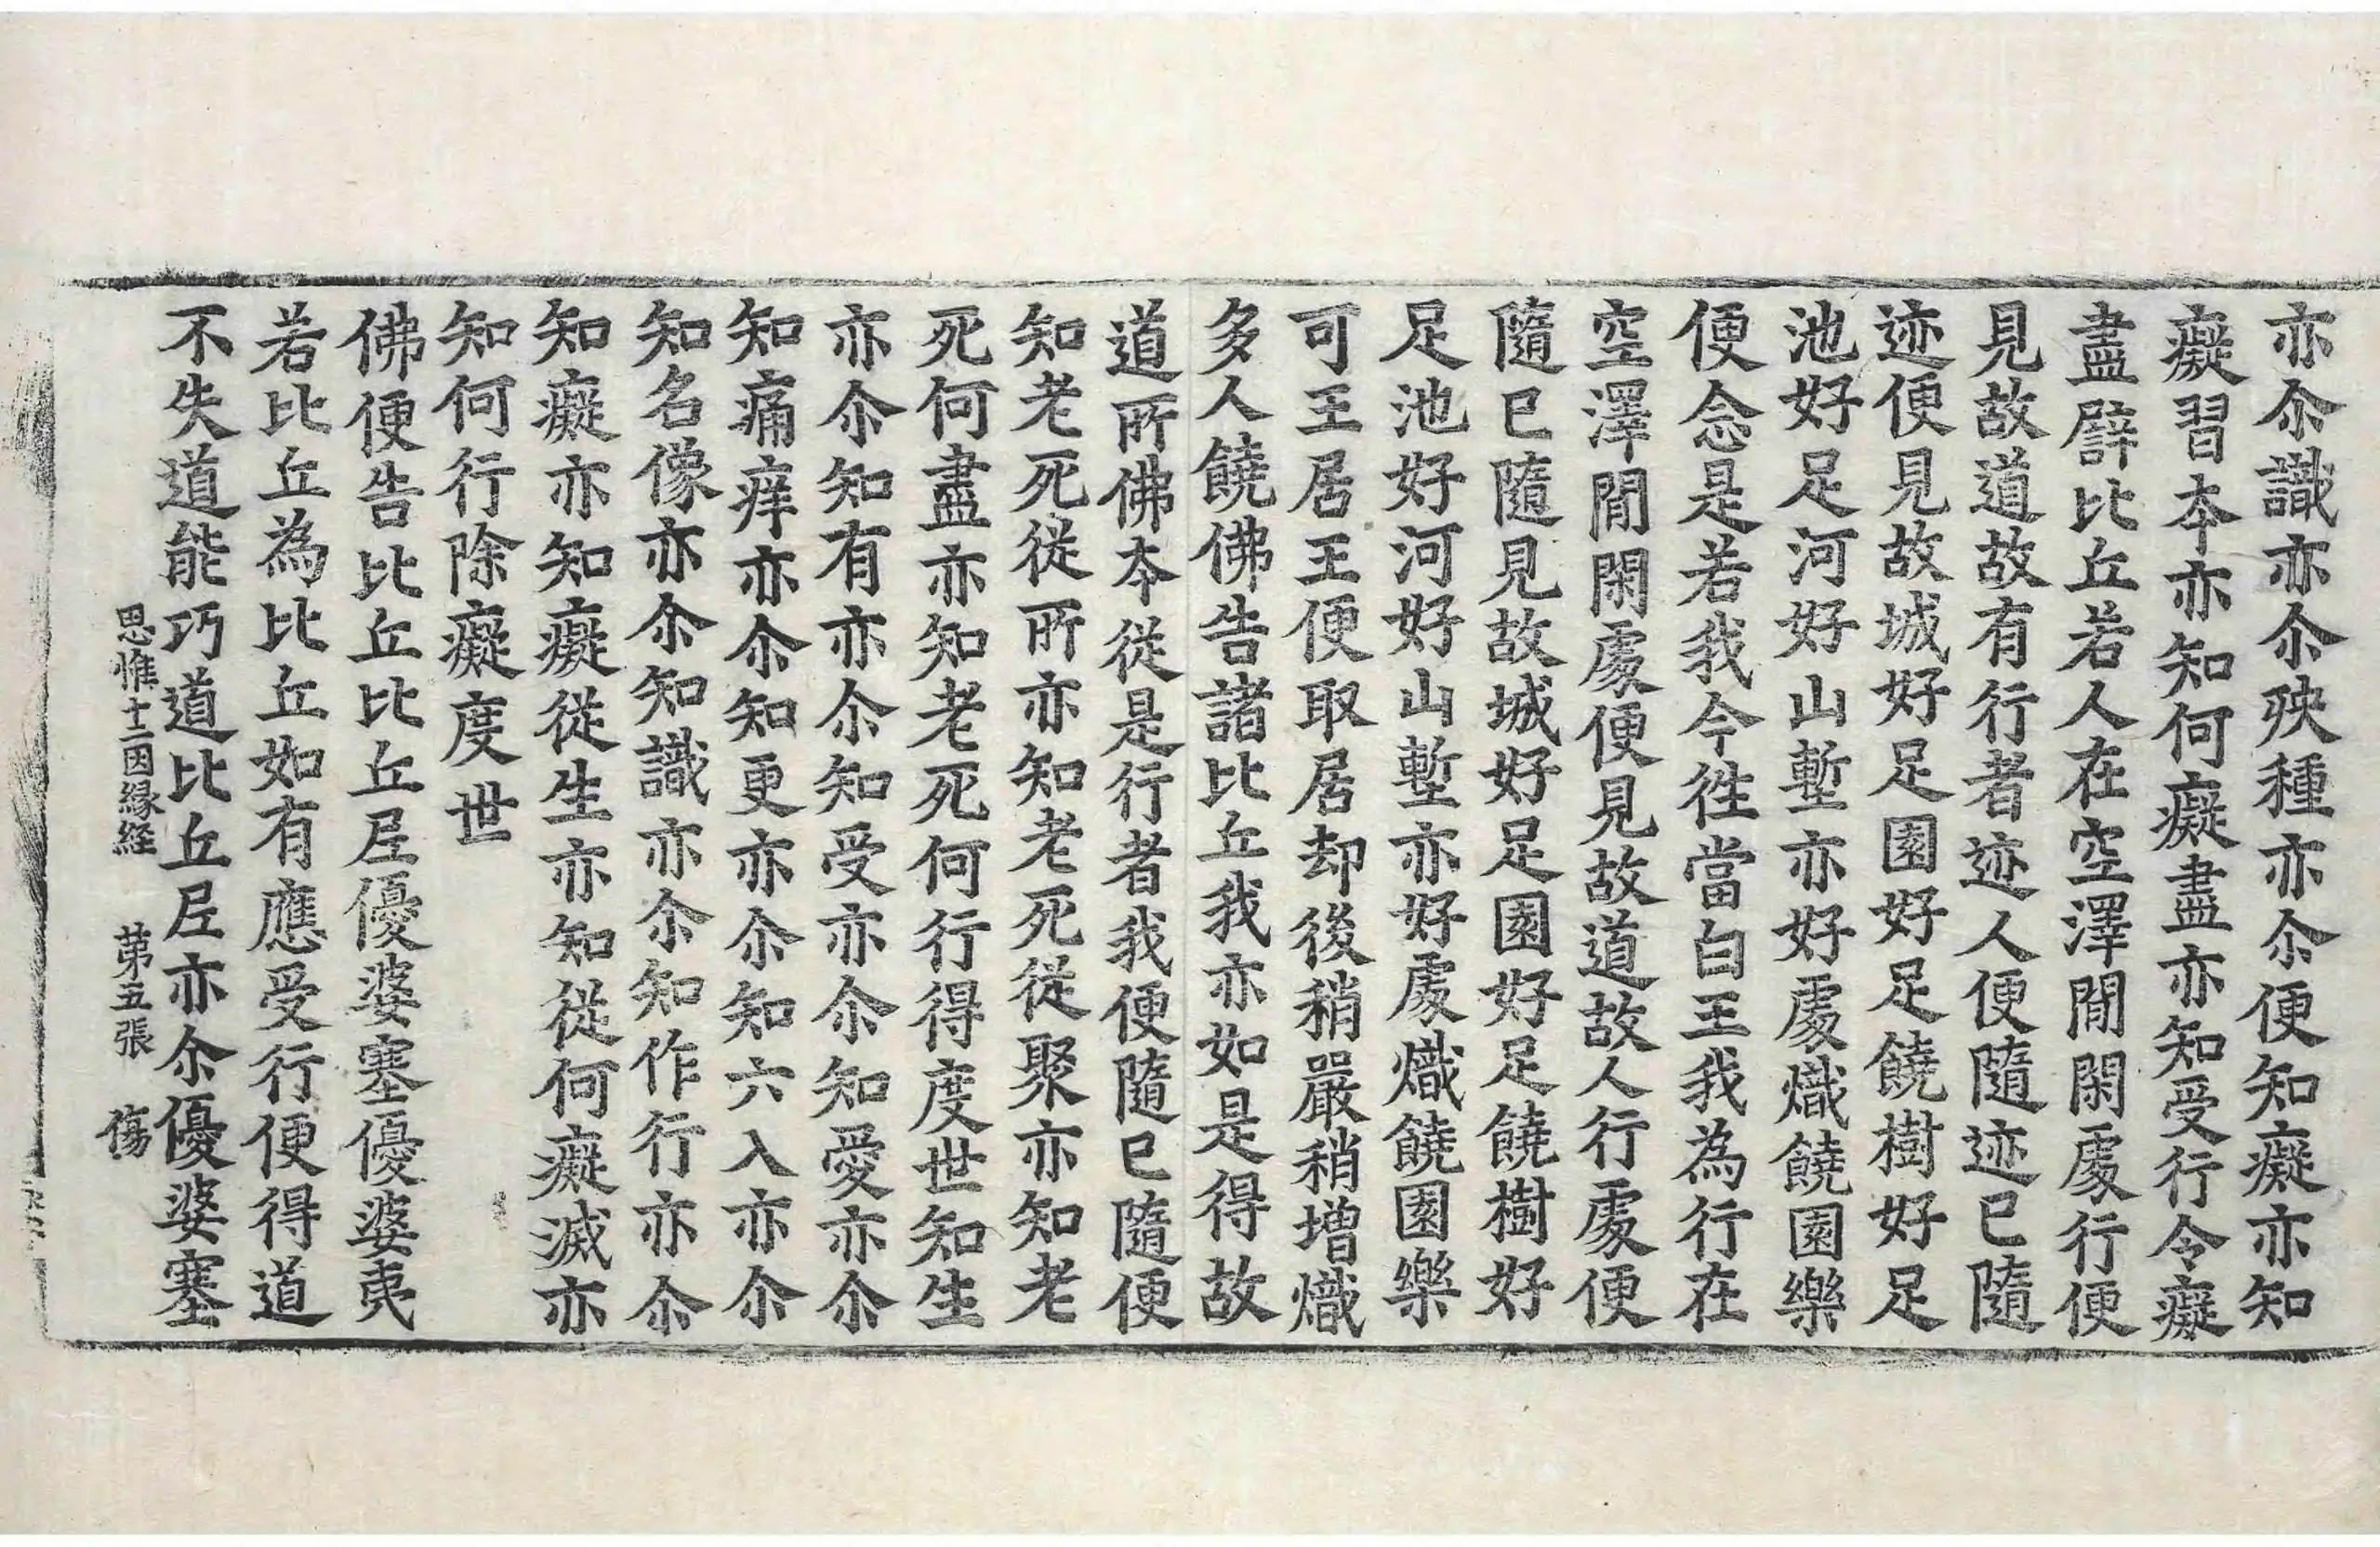 亦尒識亦尒殃種亦尒便知癡亦知
癡習本亦知何癡盡亦知受行令癡
盡辟比丘若人在空澤閒閑處行便
見故道故有行者迹人便隨迹已隨
迹便見故城好足園好足饒樹好足
池好足河好好山塹亦好處熾饒園樂
便念是若我今徃當白王我為行在
空澤閒閑處便見故道故人行處便
隨已隨見故城好足園好足饒樹好
足池好河好山塹亦好處熾饒園樂
可王居王便取居却後稍嚴稍増熾
多人饒佛告諸比丘我亦如是得故
道所佛本從是行者我便隨已隨便
知老死從所亦知老死從聚亦知老
死何盡亦知老死何行得度世知生
亦尒知有亦尒知受亦尒知愛亦尒
知痛痒亦尒知更亦尒知六入亦尒
知名像亦尒知識亦尒知作行亦尒
知癡亦知癡從生亦知從何癡滅亦
知何行除癡度世
佛便告比丘比丘尼優婆塞優婆夷
若比丘為比丘如有應受行便得道
不失道能巧道比丘尼亦尒優婆塞
思惟十二因緣経　苐五張　傷